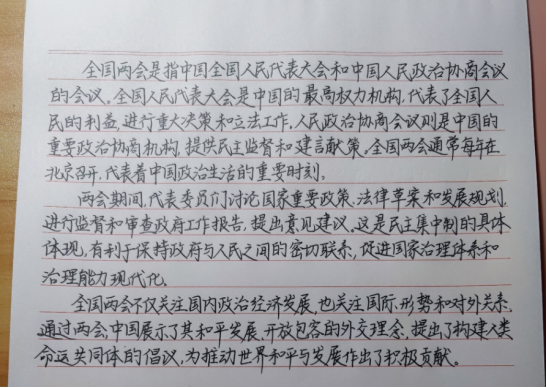 全国两会是指中国全国人民代表大会和中国人民政治协商会议
的会议。全国人民代表大会是中国的最高权力机构,代表了全国人
民的利益,进行重大决策和立法工作,人民政治协商会议则是中国的
重要政治协商机构,提供民主监督和建言献策。全国两会通常每年在
北京召开,代表着中国政治生活的重要时刻。
两会期间,代表委员们讨论国家重要政策、法律草案和发展规划,
进行监督和审查政府工作报告,提出意见建议。这是民主集中制的具体
体现,有利于保持政府与人民之间的密切联系,促进国家治理体系和
治理能力现代化。
全国两会不仅关注国内政治经济发展,也关注国际形势和对外关系,
通过两会,中国展示了其和平发展、开放包容的外交理念,提出了构建人类
命运共同体的倡议,为推动世界和平与发展作出了积极贡献。